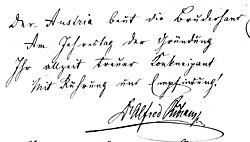 Der Austria beut die Bruderhand
Am Jahrestag der Gründung
Ihr allzeit treuer Conkneipant
Mit Rührung und Empfindung!
Dr Alfred